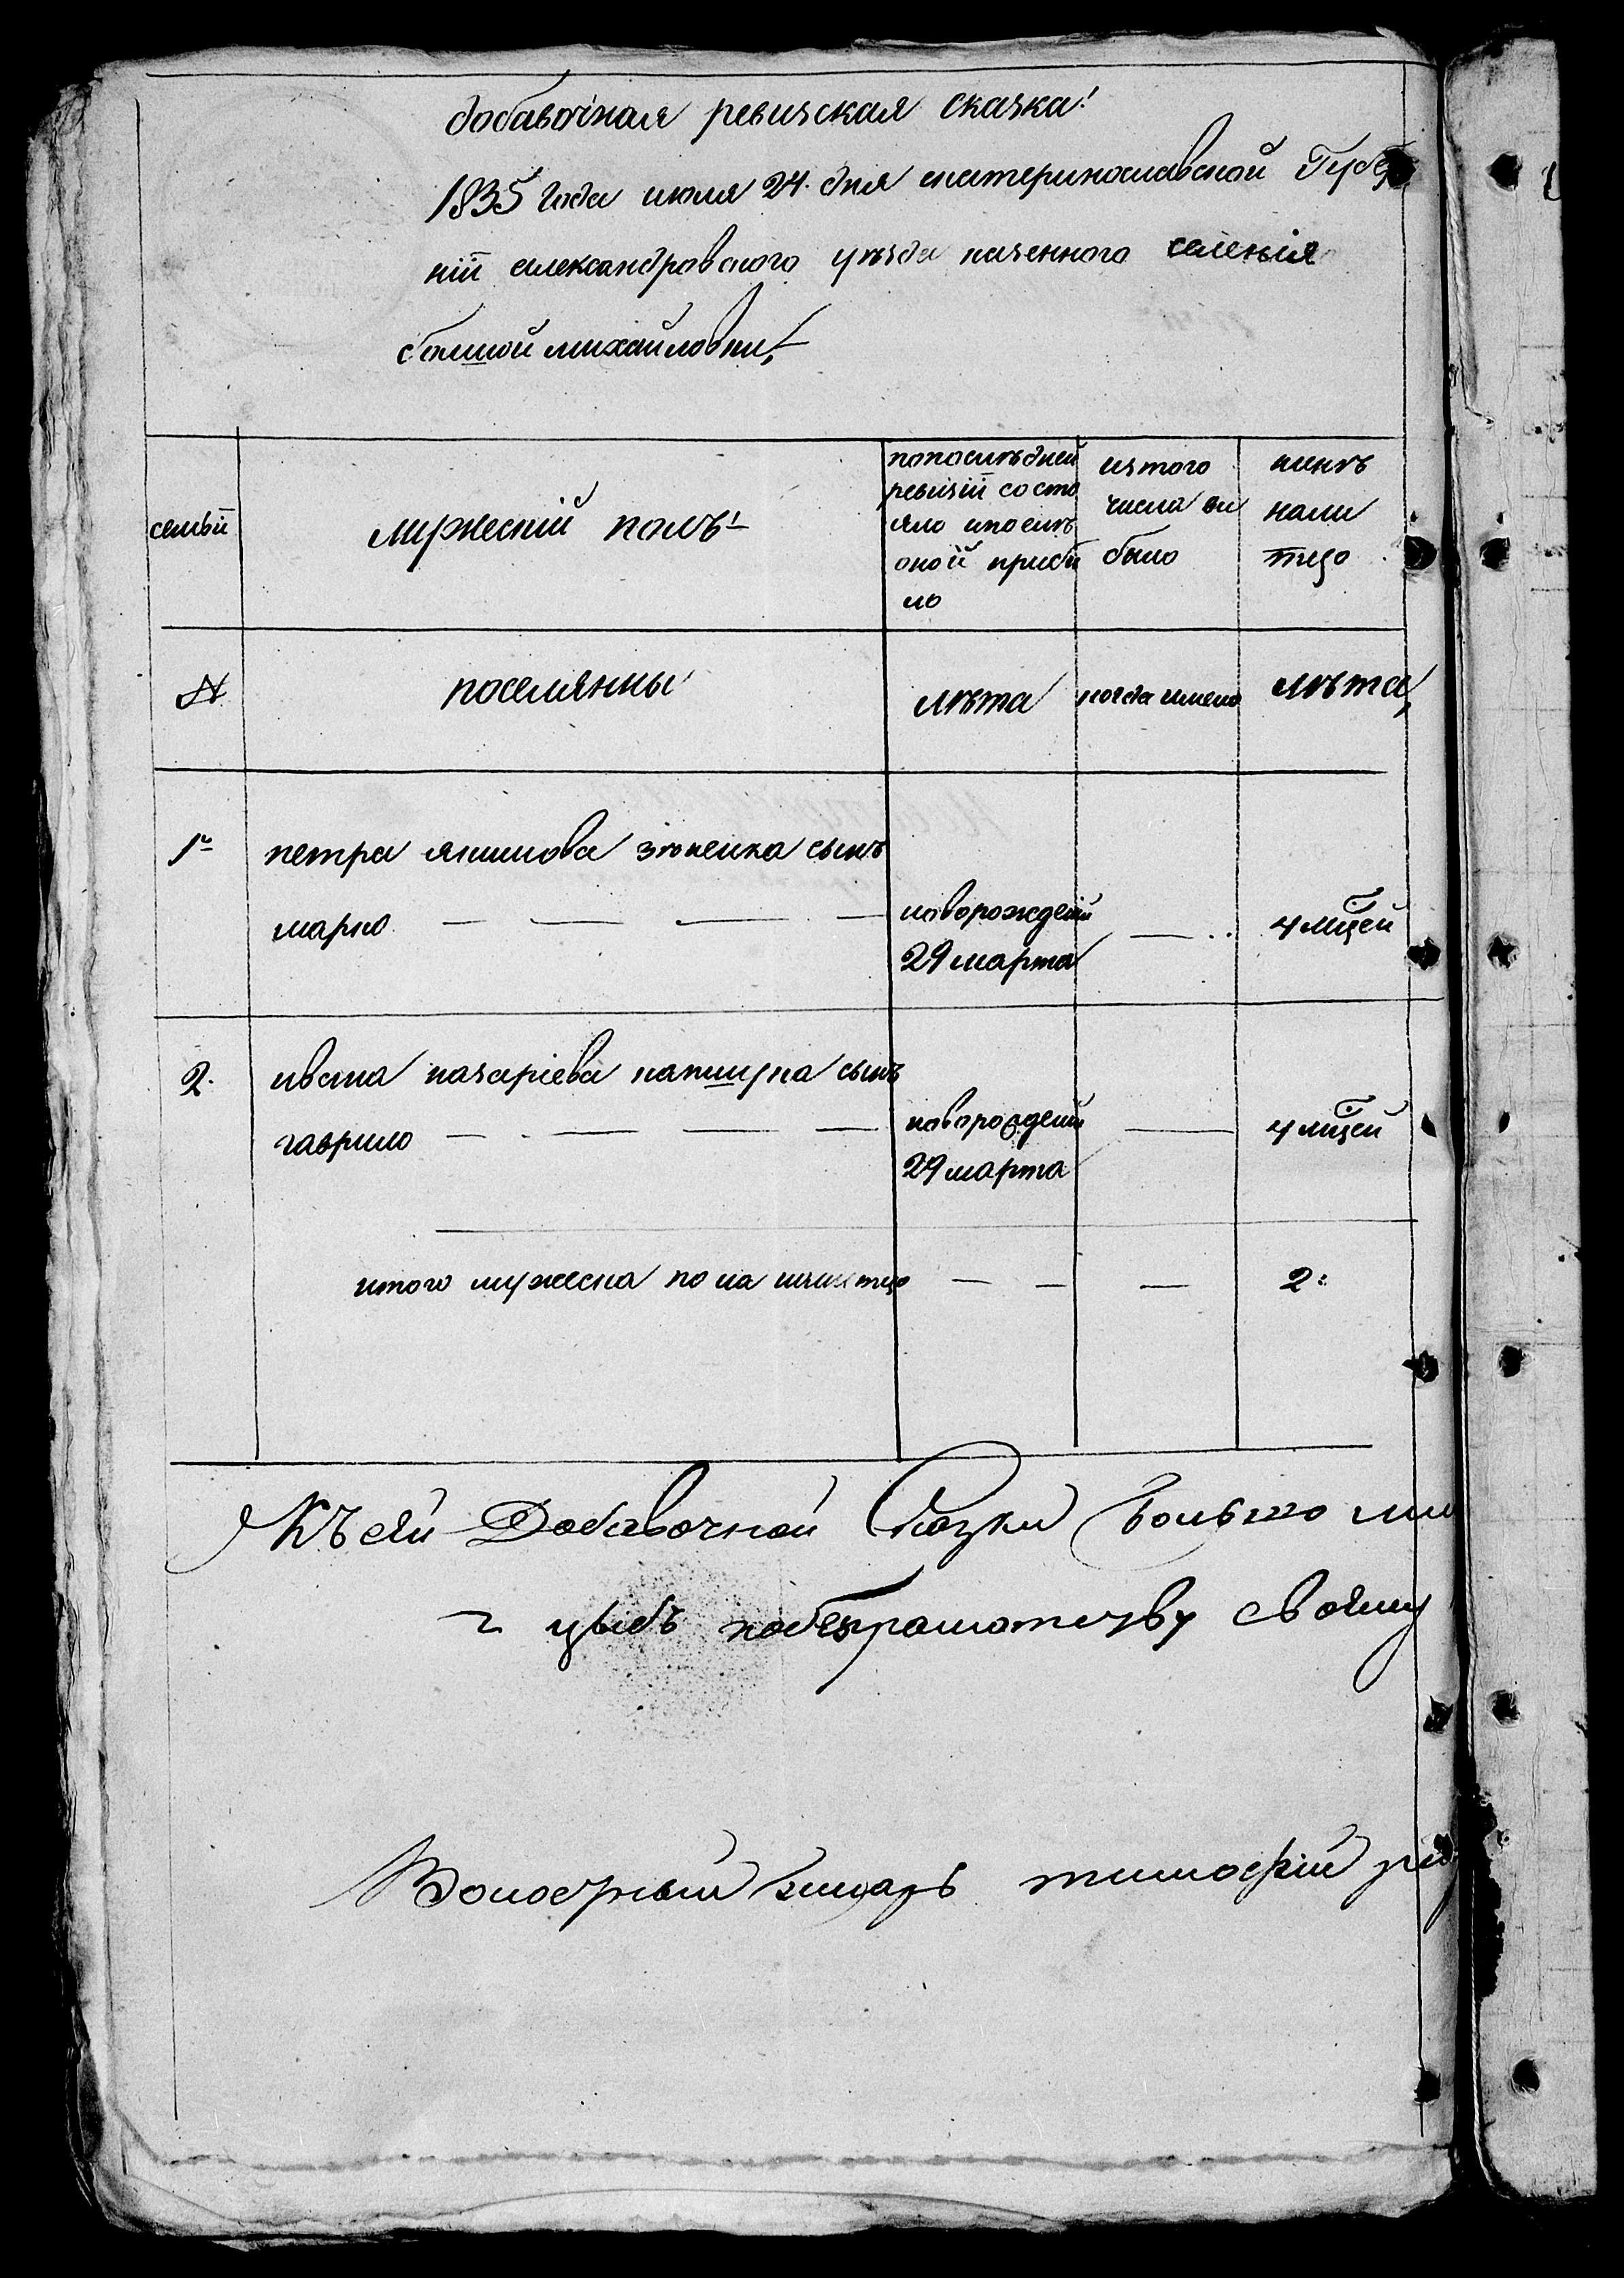 добавочная ревизская сказка!
1835 года июля 24. дня екатеринославской Губер
нiи александровского уѣзда казенного селенiя
болшой михайловки,
семьи
мужескiй полъ!
попослѣдней
ревизiи состо
яло ипослѣ
оной прибы
ло
изтого
числа вы
было
нынѣ
нали
тцо
№
поселянны
лѣта
когда имено
лѣта,
1й
петра якимова зюненка сынъ
марко
новорожденiй
29 марта
4 мцей
2.
ивана назарiева капшука сынъ
гаврило
новорожденiй
29 марта
4 мцей
итого мужеска пола налитцо
2:
Къ сей Добавочной Сказки
цывъ побезграмотству своему
тимофiй